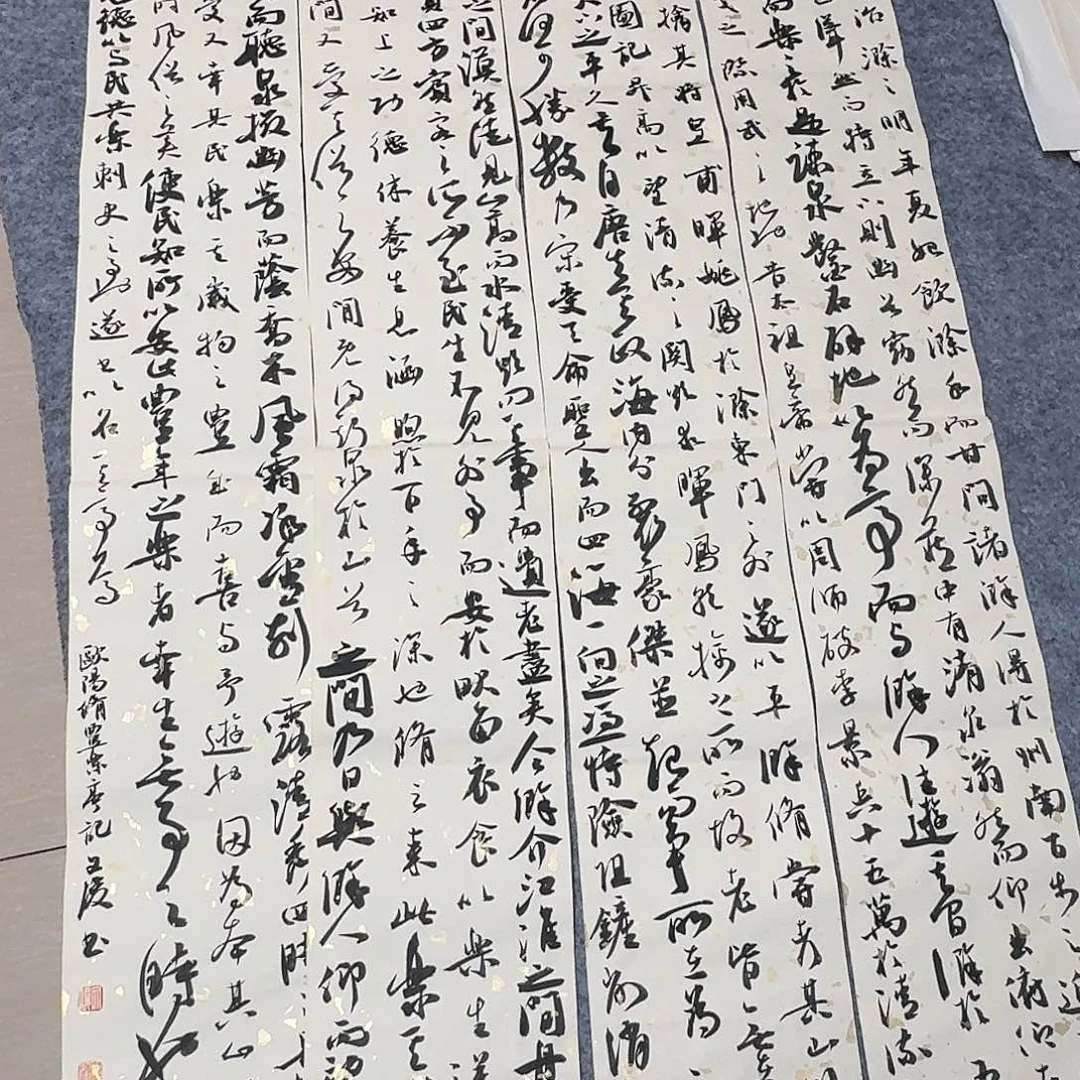 治滁之明年夏始飲滁水而甘問諸滁人得於州南百步之近
聳然而特立下則幽谷窈然而深藏中有清泉滃然而仰出俯仰左
而樂於是疏泉鑿石闢地以為亭而與滁人往遊其間滁於
戈之際用武之地也昔太祖皇帝嘗以周師破李景兵十五萬於清流
擒其將皇甫暉姚鳳於滁東門之外遂以平滁修嘗考其山川
圖記升高以望清流之關欲求暉鳳就擒之所而故老皆無在
矣下之平久矣自唐失其政海內分裂豪傑並起而爭所在為
何可勝數乃宋受天命聖人出而四海一向之馮恃險阻鏟削消
之間漠然徒見山高而水清欲問其事而遺老盡矣今滁介江淮之間舟
四方賓客之所不至民生不見外事而安於畎畝衣食以樂生送
知上之功德休養生息涵煦於百年之深也修之來此樂其
間又愛其俗之安閒既得斯泉於山谷之間乃日與滁人仰而望
而聽泉掇幽芳而蔭喬木風霜冰雪刻露清秀四時之
愛又幸其民樂其歲物之豐成而喜與予遊也因為本其山
風俗之美使民知所以安此豐年之樂者幸生無事之時也
恩德以與民共樂刺史之事遂書以名其亭焉
歐陽脩豐樂亭記 書